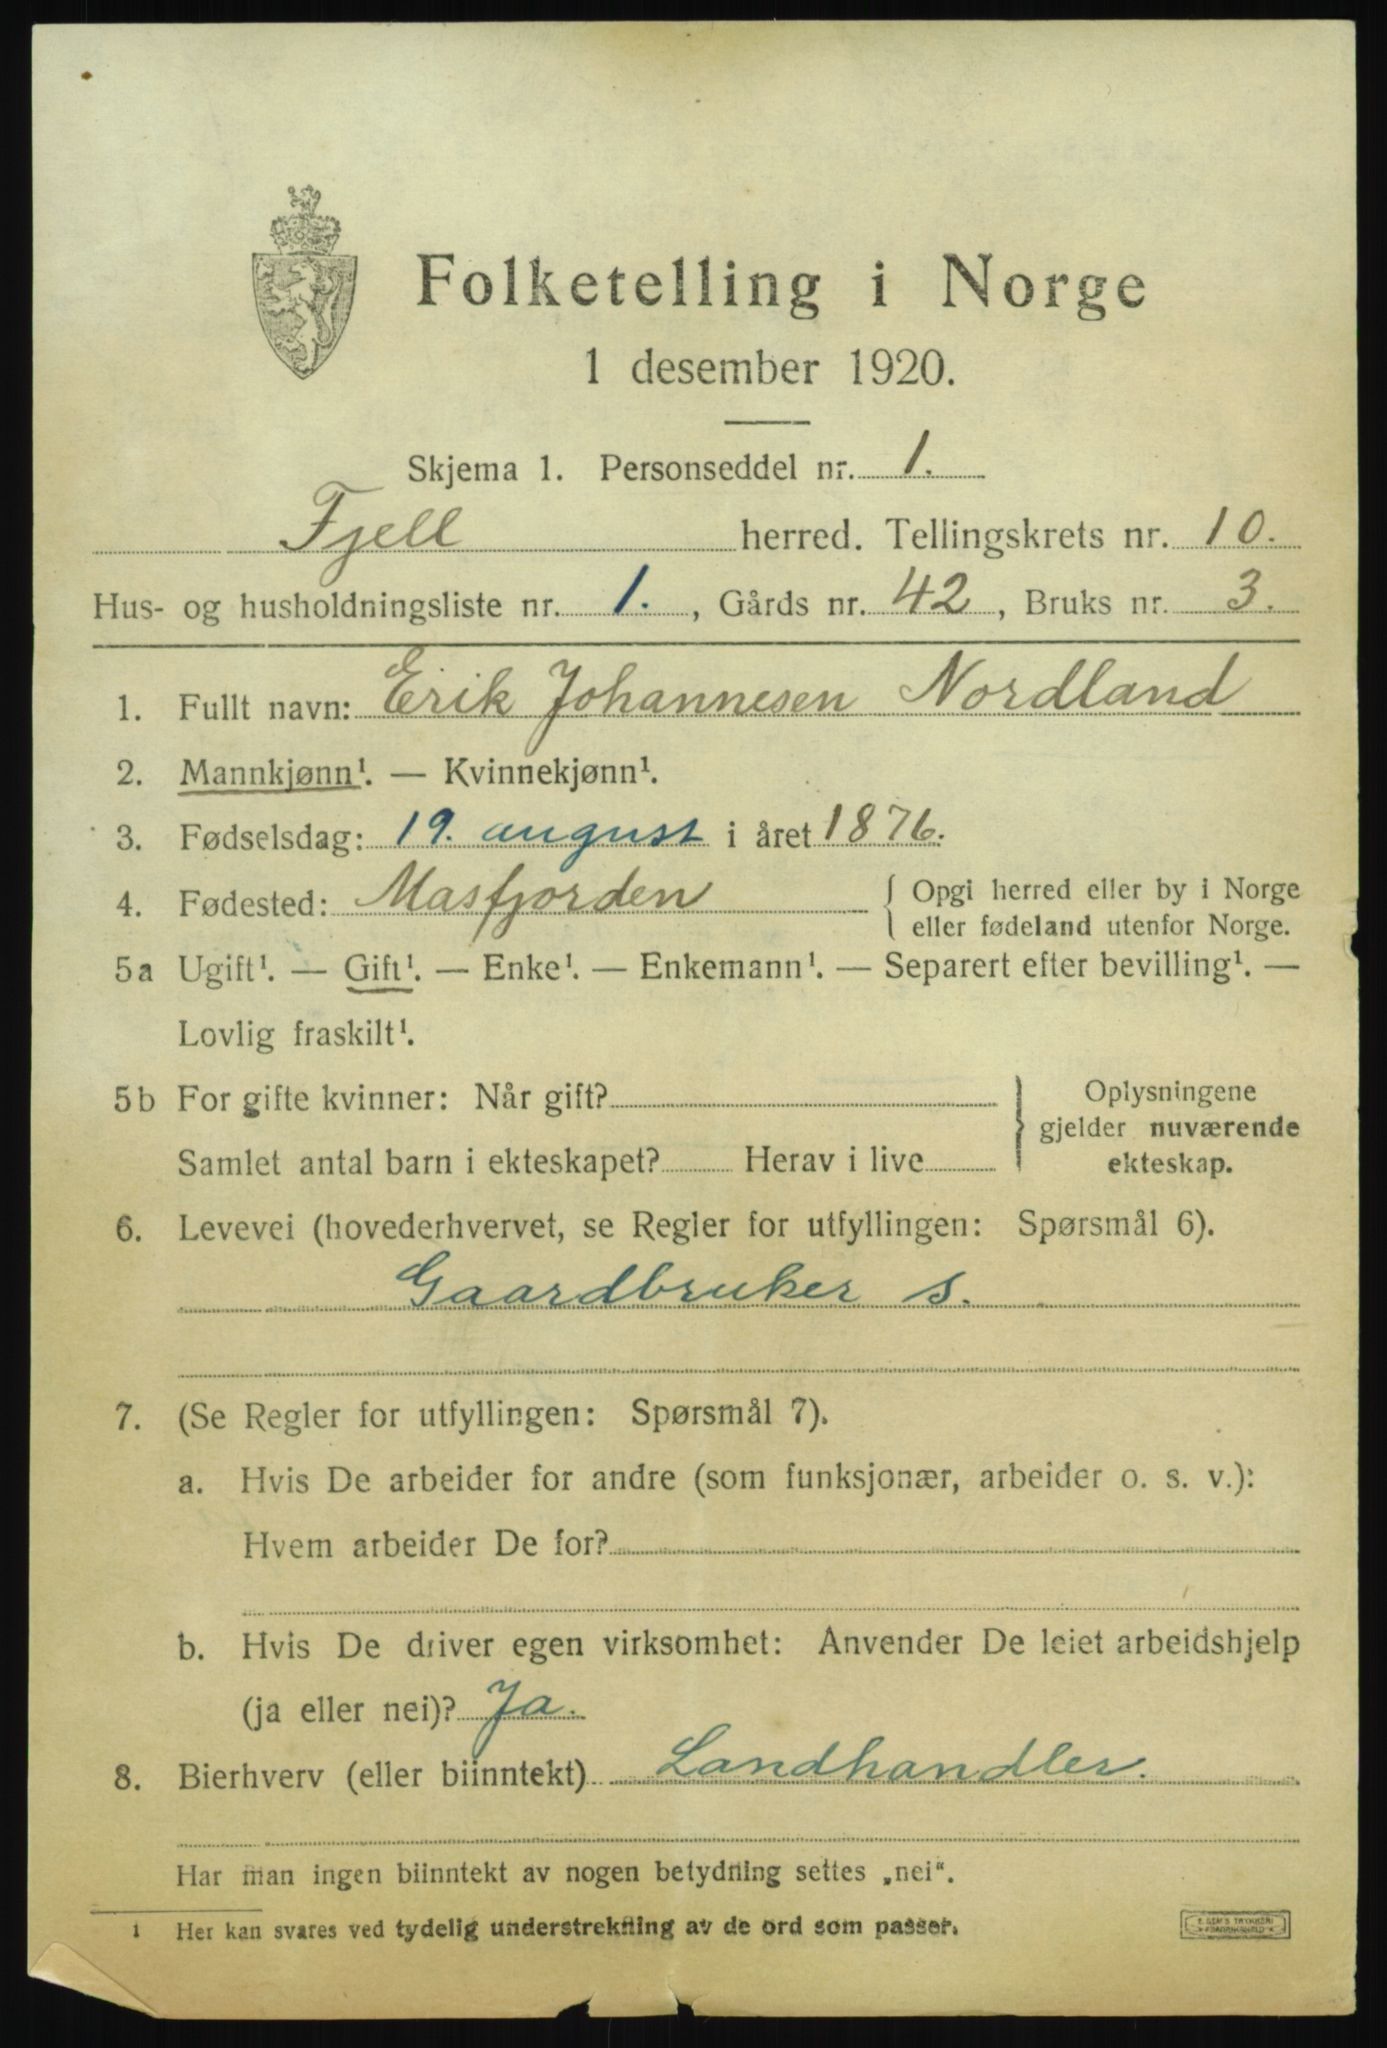 Folketelling i Norge
1 desember 1920.
Skjema 1. Personseddel nr. 1.
Fjell herred. Tellingskrets nr. 10.
Hus- og husholdningsliste nr. 1. , Gårds nr. 42 , Bruks nr. 3.
1. Fullt navn: Erik Johannesen Nordland
2. Mannkjønn¹. — Kvinnekjønn¹.
3. Fødselsdag: 19. august i året 1876.
4. Fødested: Masfjorden { Opgi herred eller by i Norge
eller fødeland utenfor Norge.
5a Ugift¹. — Gift¹. — Enke¹. — Enkemann¹. — Separert efter bevilling¹. —
Lovlig fraskilt¹.
5b For gifte kvinner: Når gift? } Oplysningene
gjelder nuværende
Samlet antal barn i ekteskapet? Herav i live ekteskap.
6. Levevei (hovederhvervet, se Regler for utfyllingen: Spørsmål 6).
Gaardbruker s.
7. (Se Regler for utfyllingen: Spørsmål 7).
a. Hvis De arbeider for andre (som funksjonær, arbeider o. s. v.):
Hvem arbeider De for?
b. Hvis De driver egen virksomhet: Anvender De leiet arbeidshjelp
(ja eller nei)? Ja.
8. Bierhverv (eller biinntekt) Landhandler.
Har man ingen biinntekt av nogen betydning settes „nei“.
1 Her kan svares ved tydelig understrekning av de ord som passer.